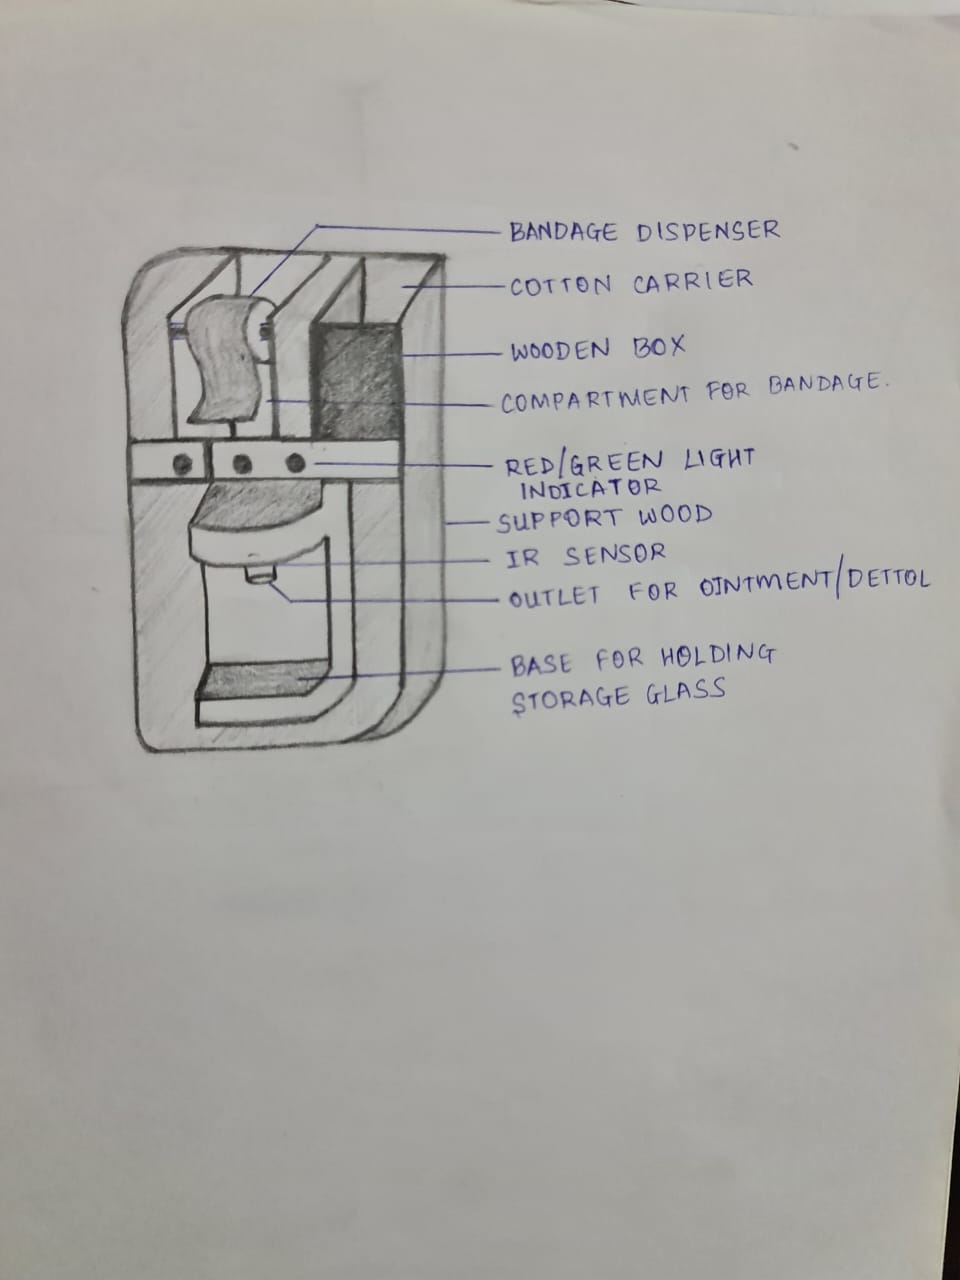 BANDAGE DISPENSER
COTTON CARRIER
WOODEN BOX
COMPARTMENT FOR BANDAGE.
RED/GREEN LIGHT
INDICATOR
SUPPORT WOOD
IR SENSOR
OUTLET FOR OINTMENT/DETTOL
BASE FOR HOLDING
STORAGE GLASS